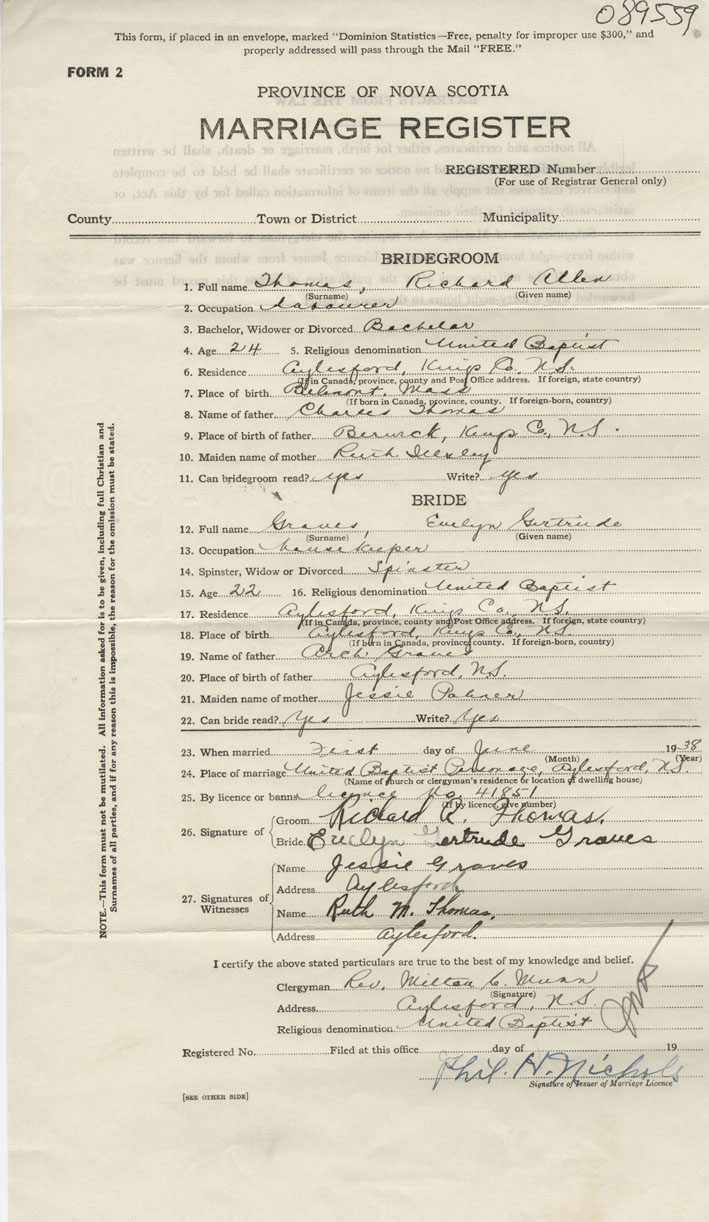 089559
This form, if placed in an envelope, marked "Dominion Statistics—Free, penalty for improper use $300," and
properly addressed will pass through the Mail "FREE."
FORM 2
PROVINCE OF NOVA SCOTIA
MARRIAGE REGISTER
REGISTERED Number
(For use of Registrar General only)
County Town or District Municipality
BRIDEGROOM
1. Full name Thomas, Richard Allen
(Surname) (Given name)
2. Occupation Labourer
3. Bachelor, Widower or Divorced Bachelor
4. Age 24 5. Religious denomination United Baptist
6. Residence Aylesford, Kings Co. N.S.
(If in Canada, province, county and Post Office address. If foreign, state country)
7. Place of birth Belmont, Mass
(If born in Canada, province, county. If foreign-born, country)
8. Name of father Charles Thomas
9. Place of birth of father Berwick, Kings Co, N.S.
10. Maiden name of mother Ruth
11. Can bridegroom read? yes Write? yes
BRIDE
12. Full name Graves, Evelyn Gertrude
(Surname) (Given name)
13. Occupation housekeeper
14. Spinster, Widow or Divorced Spinster
15. Age 22 16. Religious denomination United Baptist
17. Residence Aylesford, Kings Co., N.S.
(If in Canada, province, county and Post Office address. If foreign, state country)
18. Place of birth Aylesford, Kings Co., N.S.
(If born in Canada, province, county. If foreign-born, country)
19. Name of father Arch. Graves
20. Place of birth of father Aylesford, N.S.
21. Maiden name of mother Jessie Palmer
22. Can bride read? Yes Write? Yes
23. When married First day of June 1938
(Month) (Year)
24. Place of marriage United Baptist Parsonage, Aylesford, N.S.
(Name of church or clergyman's residence or location of dwelling house)
25. By licence or banns licence No. 41851
(If by licence, give number)
26. Signature of
Groom Richard A. Thomas.
Bride Evelyn Gertrude Graves
27. Signatures of Witnesses
Name Jessie Graves
Address Aylesford
Name Ruth M. Thomas.
Address Aylesford.
I certify the above stated particulars are true to the best of my knowledge and belief.
Clergyman Rev. Milton C. Munn
(Signature)
Address Aylesford, N.S.
Religious denomination United Baptist
Registered No. Filed at this office day of 19
Phil. H. Nichols
Signature of Issuer of Marriage Licence
[SEE OTHER SIDE]
NOTE.—This form must not be mutilated. All information asked for is to be given, including full Christian and
Surnames of all parties, and if for any reason this is impossible, the reason for the omission must be stated.